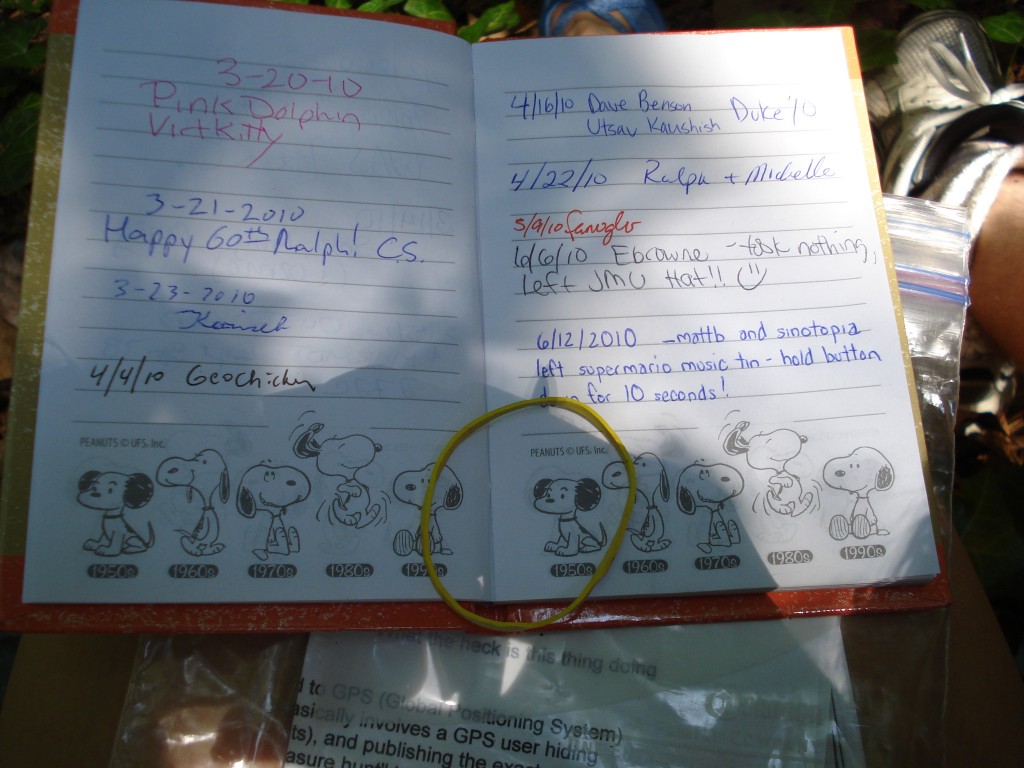 3-20-10
Pink Dolphin
VictKitty
3-21-2010
Happy 60th Ralph! C.S.
3-23-2010
4/4/10 Geochicken
PEANUTS © UFS, Inc.
1950s 1960s 1970s 1980s 1990s
4/16/10 Dave Benson Duke '10
Utsav Kaushish
4/22/10 Ralph + Michelle
5/9/10
6/6/10 Ebrowne - took nothing,
left JMU Hat!! ☺
6/12/2010 - mattb and sinotopia
left supermario music tin - hold button
down for 10 seconds!
PEANUTS © UFS, Inc.
1950s 1960s 1970s 1980s 1990s
the heck is this thing doing
to GPS (Global Positioning System)
asically involves a GPS user hiding
ts), and publishing the exact
asure hunt